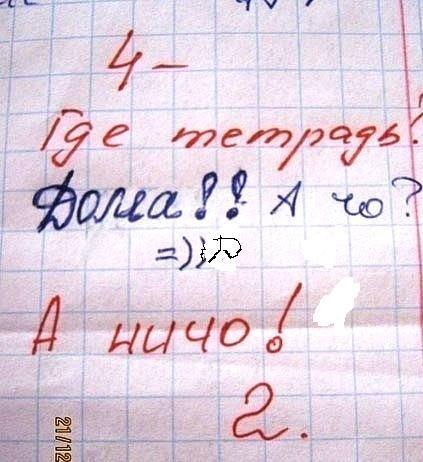 4-
Где тетрадь?
Дома!! А чо?
=))
А ничо!
2.
21/12